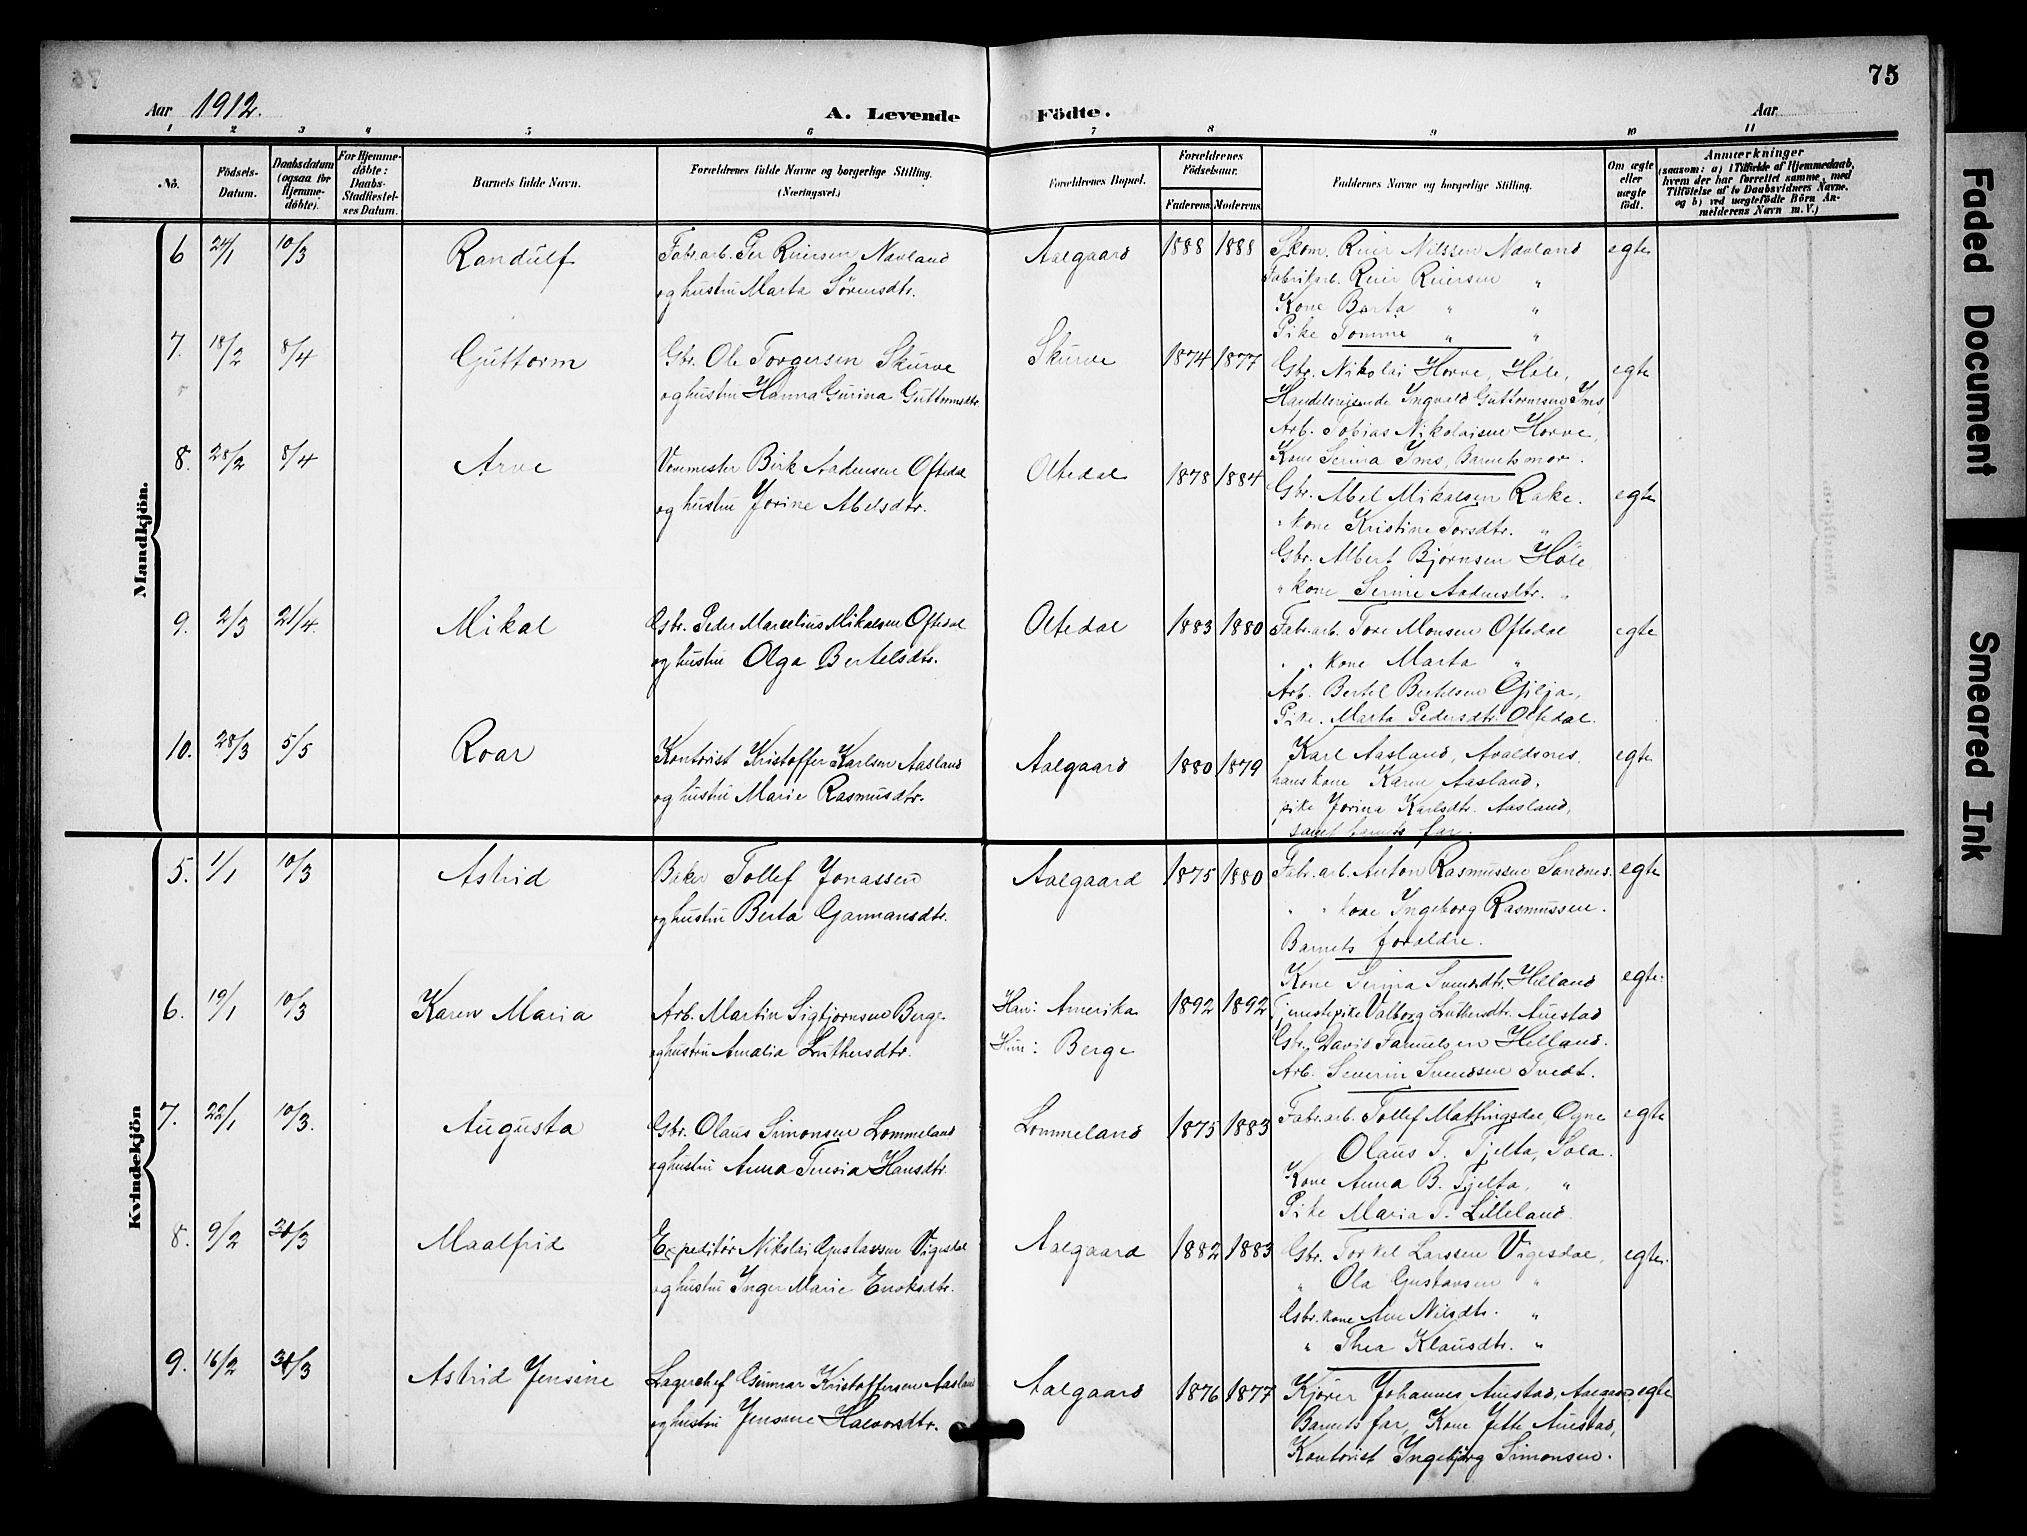 75
Aar 1912.
A. Levende Födte.
Aar
1 2 3 4 5 6 7 8 9 10 11
No.
Födsels-Datum.
Daabsdatum (ogsaa for Hjemmedöbte).
For Hjemmedöbte: Daabs-Stadfæstelses Datum.
Barnets fulde Navn.
Forældrenes fulde Navne og borgerlige Stilling. (Næringsvei.)
Forældrenes Bopæl.
Forældrenes Födselsaar.
Faderens. Moderens.
Faddernes Navne og borgerlige Stilling.
Om ægte eller uægte födt.
Anmærkninger
(saasom: a) i Tilfælde af Hjemmedaab, hvem der har forrettet samme, med Tilföielse af to Daabsvidners Navne. og b) ved uægtefödte Börn Anmelderens Navn m.V.)
Mandkjön.
6 24/1 10/3 Randulf
Fabr.arb. Per Reiersen Navland
og hustru Marta Sørensdtr.
Aalgaard 1888 1888
Skom. Reier Nilssen Navland
Fabrikarb. Reier Reiersen "
Kone Berta " "
Pike Tomine " "
egte
7. 18/2 8/4 Guttorm
Gbr. Ole Torgersen Skurve
og hustru Hanna Gurina Guttormsdtr.
Skurve 1874 1877
Gbr. Nikolai Horve, Høle,
Handelsreisende Ingvald Guttormsen Ims,
Arb. Tobias Nikolaisen Horve,
Kone Serina Ims, Barnets mor.
egte
8. 28/2 8/4 Arve
Vevmester Birk Aadnesen Oftedal
og hustru Jorine Abelsdtr.
Oltedal 1878 1884
Gbr. Abel Mikalsen Rake.
" kone Kristine Torsdtr. "
Gbr. Albert Bjørnsen Høle
" kone Serine Aadnesdtr. "
egte
9. 2/3 21/4. Mikal
Gbr. Peder Marcelius Mikalsen Oftedal
og hustru Olga Bertelsdtr.
Oltedal 1883 1880
Fabr.arb. Tore Monsen Oftedal
" " kone Marta "
Arb. Bertel Bertelsen Gjilja,
Pike. Marta Pedersdtr. Oltedal.
egte
10. 28/3 5/5 Roar
Kontorist Kristoffer Karlsen Aasland
og hustru Marie Rasmusdtr.
Aalgaard 1880 1879
Karl Aasland, Avaldsnes,
hans kone Karen Aasland,
pike Jorina Karlsdtr. Aasland,
samt barnets far.
egte
Kvindekjön
5. 1/1 10/3 Astrid
Baker Tollef Jonassen
og hustru Berta Garmansdtr.
Aalgaard 1875 1880
Fabr.arb. Anton Rasmussen Sandnes.
" " kone Ingeborg Rasmussen.
Barnets foraldre.
egte
6. 19/1 10/3 Karen Maria
Arb. Martin Sigbjørnsen Berge
og hustru Amalia Luthersdtr.
Han: Amerika
Hun: Berge
1892 1892
Kone Serina Svendsdtr. Helland
Tjenestepike Valborg Luthersdtr. Auestad
Gbr. David Samuelsen Helland.
Arb. Severin Svendsen Tvedt.
egte.
7. 22/1 10/3. Augusta
Gbr. Olaus Simonsen Lommeland
og hustru Anna Teresia Hansdtr.
Lommeland 1875 1883
Fabr.arb. Tollef Mattingsdal, Ogne
Olaus T. Tjelta, Sola.
Kone Anna B. Tjelta, "
Pike Maria T. Lilleland.
egte
8. 9/2 31/3 Maalfrid
Expeditør Nikolai Gustavsen Vigesdal
og hustru Inger Marie Enoksdtr.
Aalgaard 1882 1883
Gbr. Torkel Larssen Vigesdal,
" Ola Gustavsen "
Gbr. kone Ane Nilsdtr. "
" Thea Klausdtr. "
egte.
9. 16/2 31/3 Astrid Jensine
Lagerchef Gunnar Kristoffersen Aasland
og hustru Jensine Halvorsdtr.
Aalgaard 1876 1877
Kjører Johannes Auestad, Aalgaard,
Barnets far, Kone Jette Auestad,
Kontorist Ingebjørg Simonsen.
egte
Faded Document
Smeared Ink